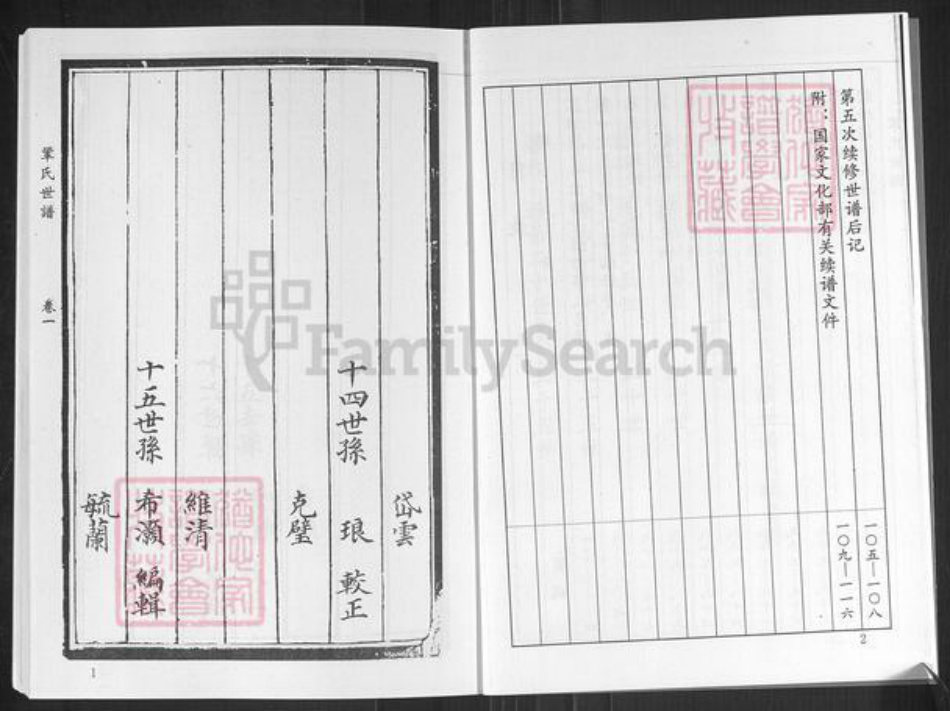 第五次续修世谱后记
一〇五—一〇八
附：国家文化部有关续谱文件
一〇九—一一六
2
岱雲
十四世孫 琅 較正
克璧
維清
十五世孫 希灝 編輯
毓蘭
鞏氏世譜 卷一
1
FamilySearch